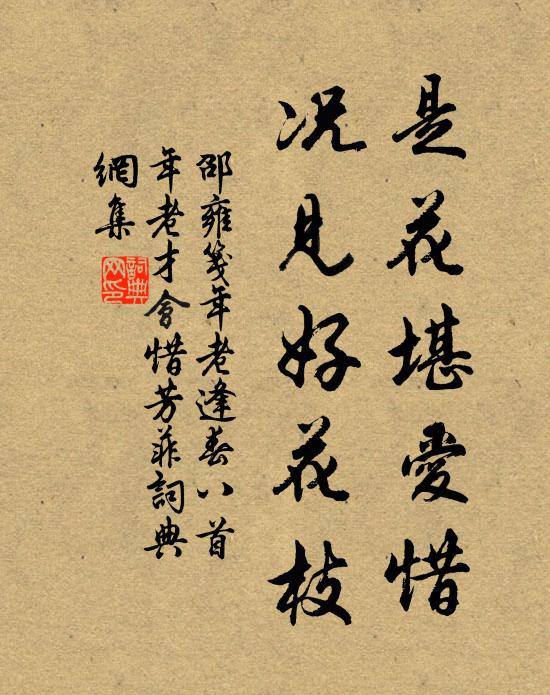 是花堪愛惜
況見好花枝
邵雍箋年老逢春八首
年老才會惜芳菲詞典
網集
詞典
网印